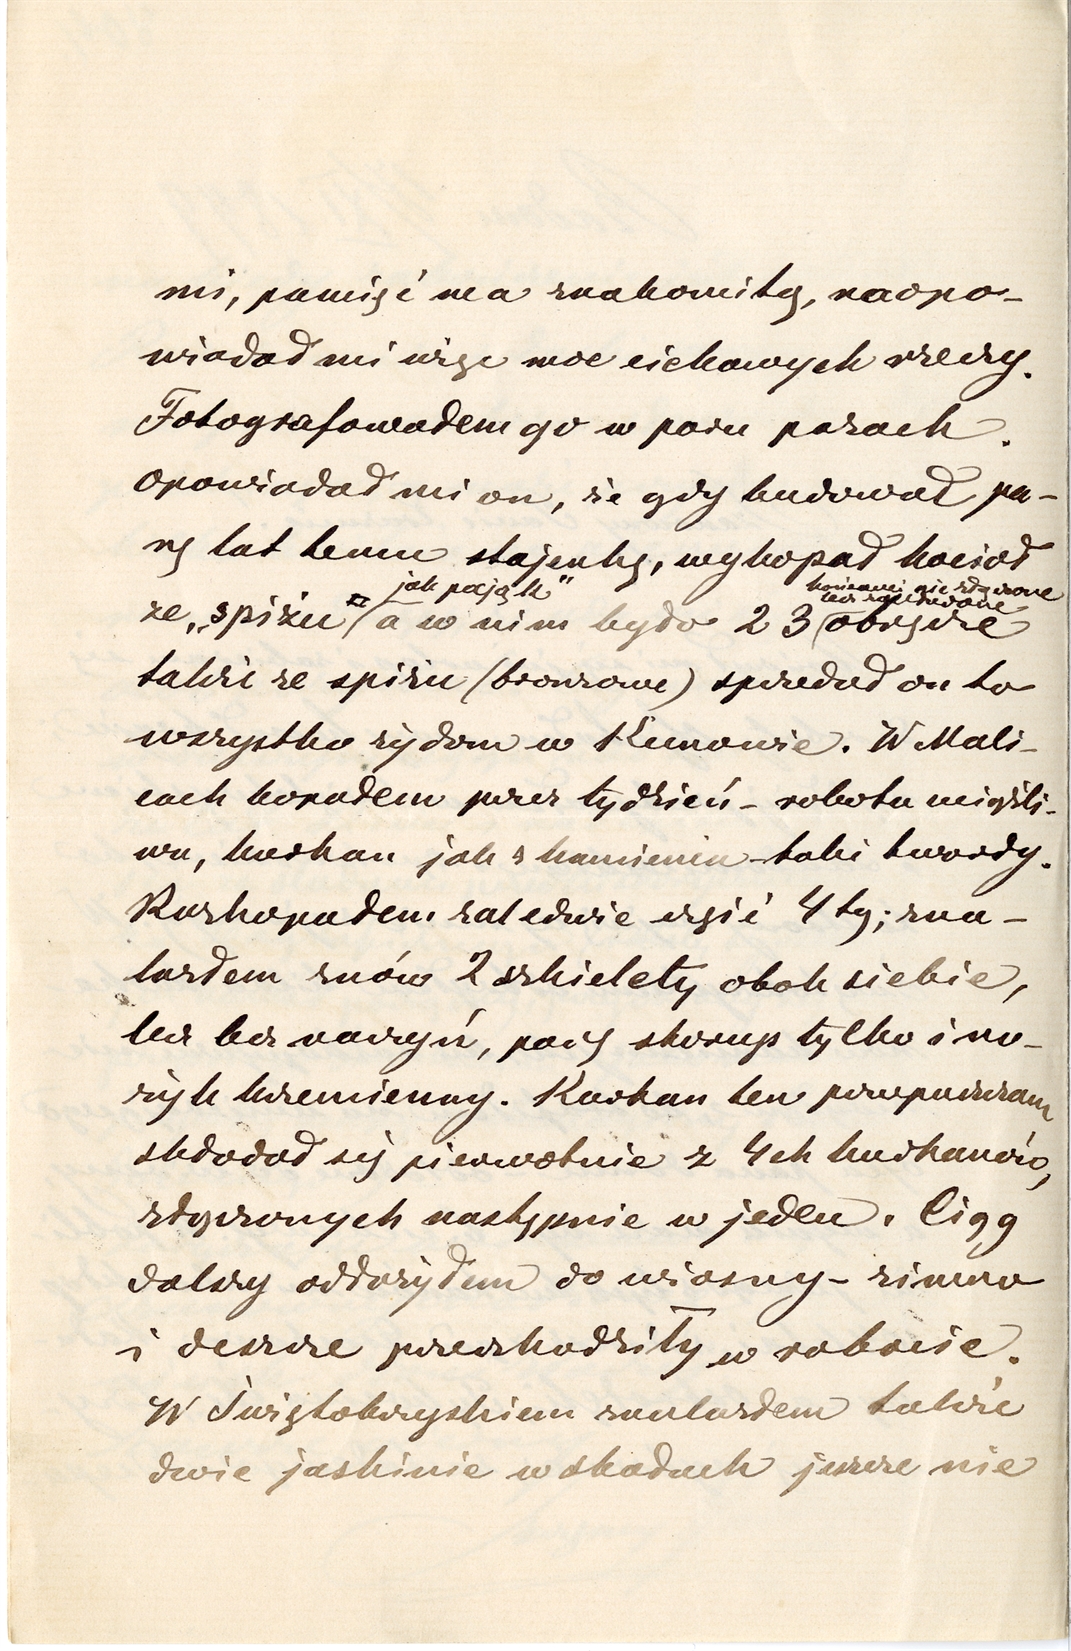 mi, pamięć ma znakomitą, naopo-
wiadał mi więc moc ciekawych rzeczy.
Fotografowałem go w paru pozach.
Opowiadał mi on, że gdy budował pa-
rę lat temu stajenkę, wykopał kocioł
jak pająk" końcami nie złączone
lecz
ze „spiżu (a w nim było 23 obrącze
także ze spiżu (bronzowe) sprzedał on to
wszystko żydom w Kunowie. W Mali-
cach kopałem przez tydzień – robota mięźli-
wa, kurhan jak z kamienia taki twardy.
Rozkopałem zaledwie część 4tą; zna-
lazłem znów 2 szkielety obok siebie,
lecz bez naczyń, parę skorup tylko i no-
żyk krzemienny. Kurhan ten przepuszczam
składał się pierwotnie z 4ch kurhanów,
złączonych następnie w jeden. Ciąg
dalszy odłożyłem do wiosny – zimno
i deszcze przeszkodziły w robocie.
W Świętokrzyskiem znalazłem także
dwie jaskinie w skałach jeszcze nie